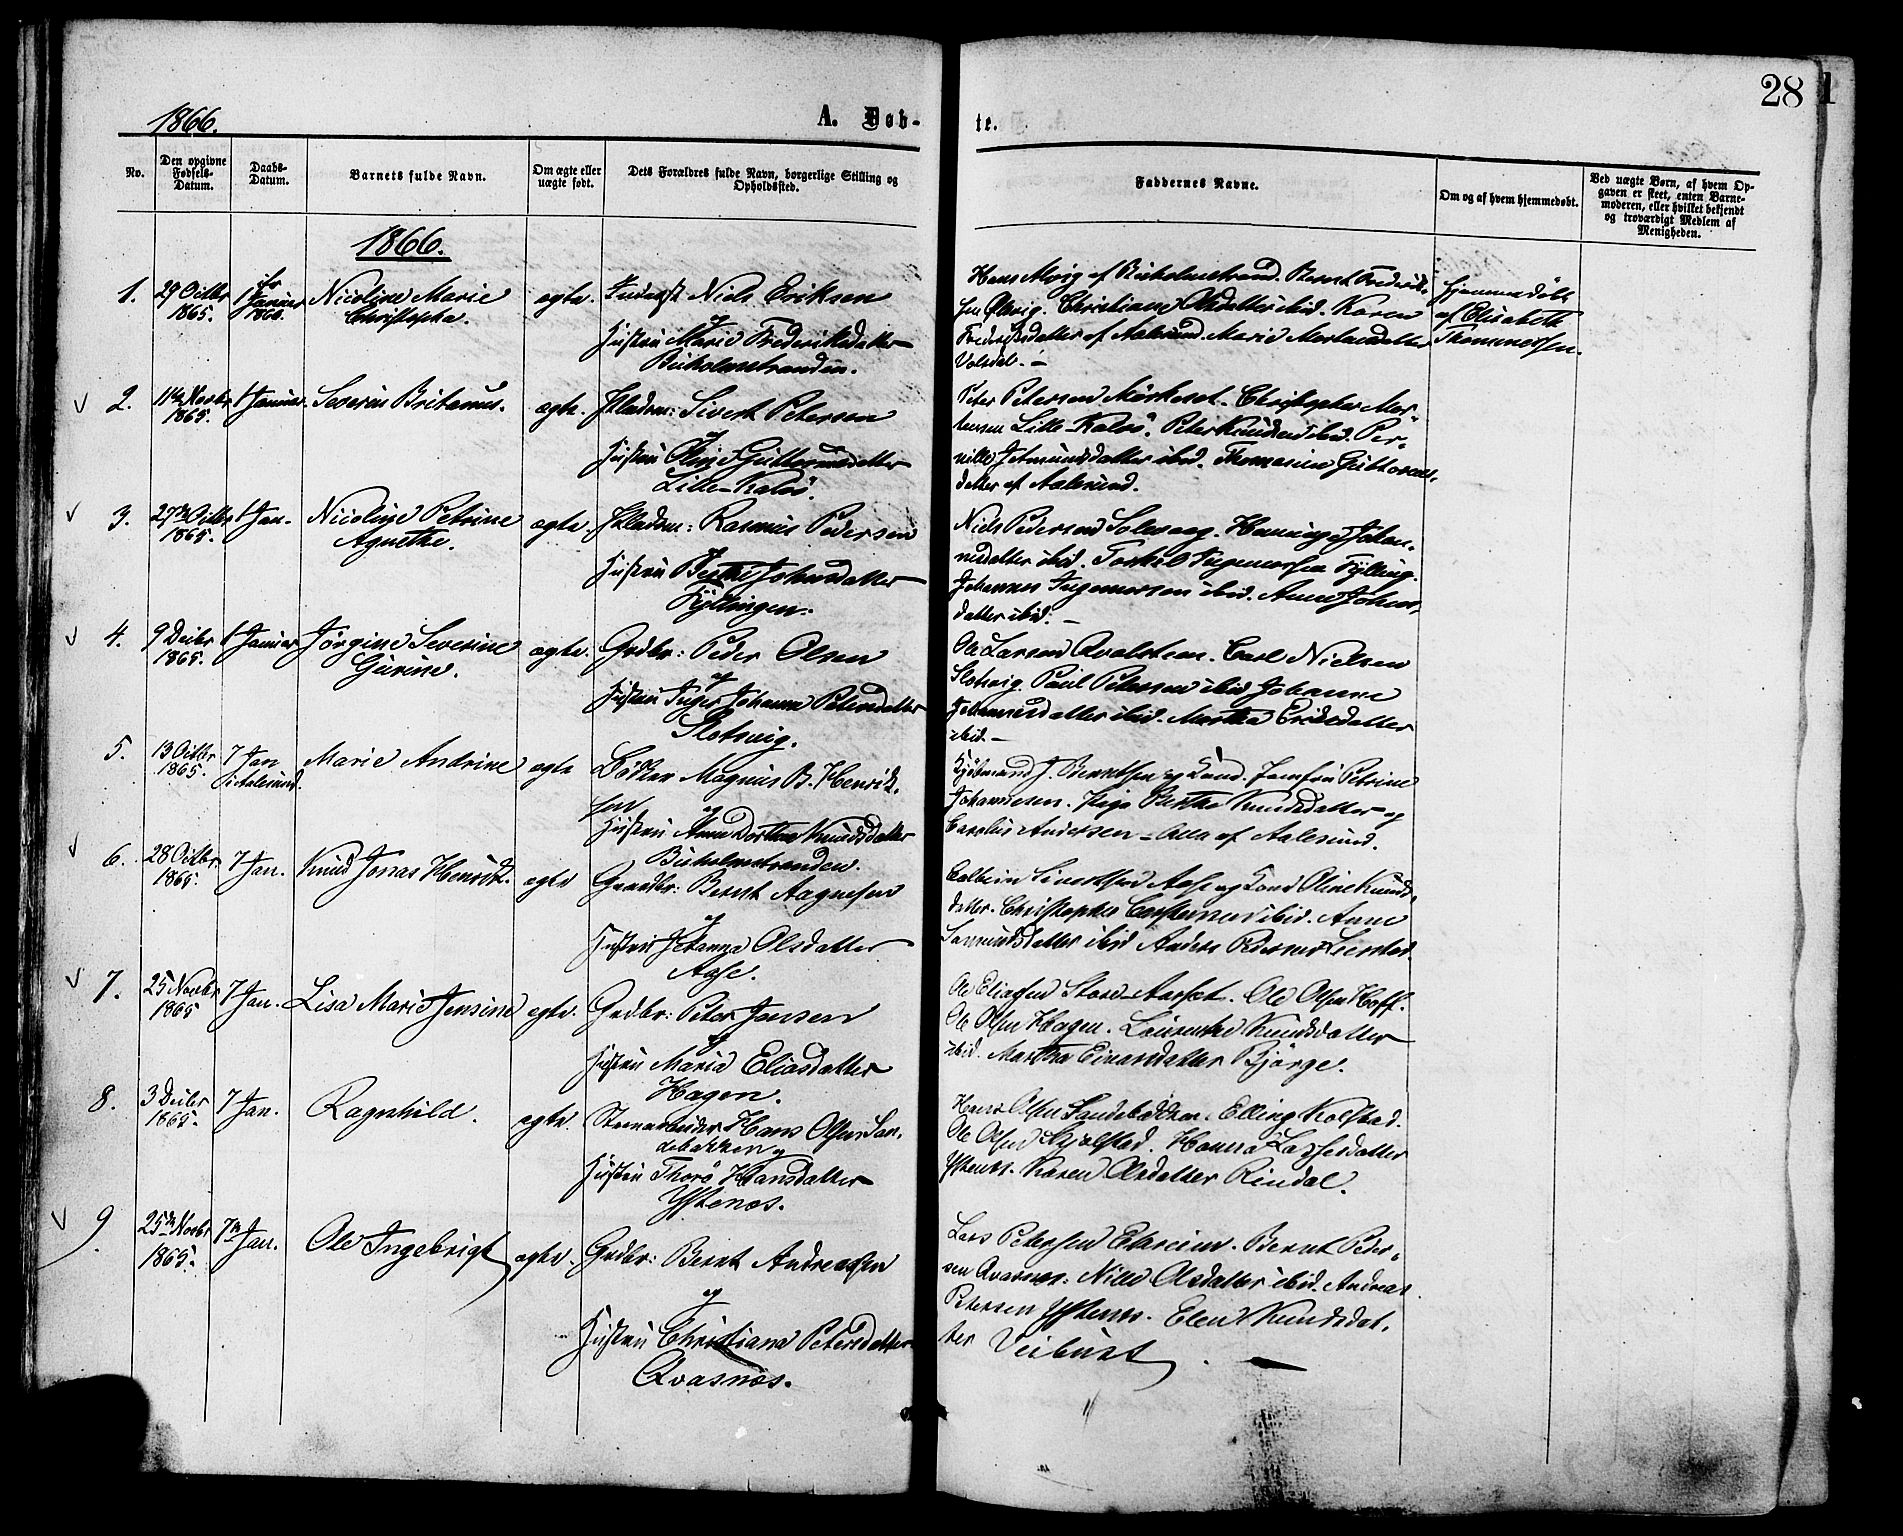 1866.
A. Døb-
te.
28
1
No.
Den opgivne
Fødsels-
Datum.
Daabs-
Datum.
Barnets fulde Navn.
Om ægte eller
uægte født.
Dets Forældres fulde Navn, borgerlige Stilling og
Opholdssted.
Faddernes Navne.
Om og af hvem hjemmedøbt.
Ved uægte Børn, af hvem Op-
gaven er skeet, enten Barne-
moderen, eller hvilket bekjendt
og troværdigt Medlem af
Menigheden.
1866.
1.
29 Octbr
1865.
1 Januar
1866.
Nicoline Marie
Christopha.
ægte.
Niels Eriksen
og
Hustru Marie Frederiksdatter
Buholmstranden.
Hans Alvig af Buholmstrand. Bernt Frederik-
sen Christiane Olsdatter ibid. Karen
Frederiksdatter af Aalesund. Marie Mortensdatter
Volsdal. –
Hjemmedøbt
af Elisabeth
Thommessen.
2.
11te Novbr
1865.
1 Januar.
Severin Britanus.
ægte.
Sivert Petersen
og
Hustru Oline Guttormsdatter
Lille-Kalvø.
Peter Petersen Mørkeset. Christopher Mor-
tensen Lille-Kalvø. Peter Knudsen ibid. Per-
nille Jetmundsdatter ibid. Thomasine
datter af Aalesund.
3.
27de Octbr
1865.
1 Jan.
Nicoline Petrine
Agnethe.
ægte.
Rasmus Pedersen
og
Hustru Berthe Johansdatter
Kyllingen.
Niels Pedersen Solevaag. Johan-
nesdatter ibid. Torkel Ingemarsen Kylling.
Johannes Ingemarsen ibid. Anne Johans-
datter ibid. –
4.
9 Decbr
1865.
1 Januar
Jørgine Severine
Gurine.
ægte.
Grdbr: Peder Olsen
og
Hustru Inger Johanna Petersdatter
Slotsvig.
Ole Larsen Qvalsteen. Carl Nielsen
Slotsvig. Paul Petersen ibid Johanne
Johannesdatter ibid. Martha Eriksdatter
ibid. –
5.
13 Octbr
1865.
7 Jan
i Aalesund.
Marie Andrine
ægte
Bødker Magnus B. Henrik-
sen og
Hustru Anne Dorthea Knudsdatter
Buholmstranden.
Kjøbmand J. Berntsen og Kone. Jomfru Petrine
Johannesen. Pige Berthe Knudsdatter og
Carolus Andersen – Alle af Aalesund.
6.
28 Octbr
1865.
7 Jan.
Knud Jonas Henrik.
ægte
Gaardbr: Bernt Aagesen
og
Hustru Johanna Olsdatter
Aase.
Sivertsen Aase og Kone Oline Knuds-
datter. Christopher ibid. Anne
Samundsdatter ibid Anders
7.
25 Novbr
1865
7 Jan.
Lisa Marie Jensine
ægte.
Grdbr: Peter Jensen
og
Hustru Maria Eliasdatter
Hagen.
Ole Eliassen Store-Aarset. Ole Olsen Hoff.
Ole Olsen Hagen. Laurentse Knudsdatter
ibid. Martha Einarsdatter Bjørge.
8.
3 Decbr
1865.
7 Jan.
Ragnhild.
ægte.
Steenarbeider Hans Olsen San-
debakken og
Hustru Thora Hansdatter
Ystenes.
Hans Olsen Sandebakken. Elling Kolstad.
Ole Olsen Hanna Lassesdatter
Ystenes. Karen Olsdatter Rindal.
9.
25de Novbr
1865.
7de Jan.
Ole Ingebrigt
ægte.
Grdbr: Bernt Andreassen
og
Hustru Christiana Petersdatter
Qvasnæs.
Lars Petersen Eleseim. Bernt Peder-
sen Qvasnes. Nille Olsdatter ibid. Andreas
Petersen Ystenes. Elen Knudsdat-
ter Veibust